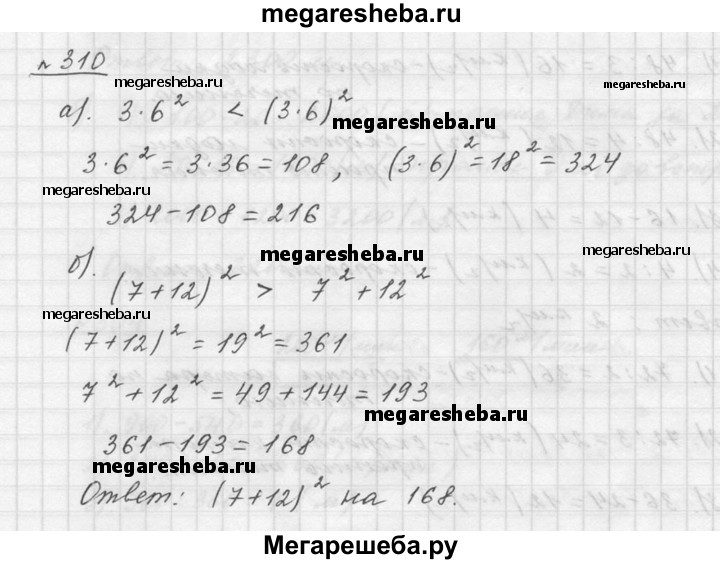 megaresheba.ru
№ 310
megaresheba.ru megaresheba.ru
а). 3·6² < (3·6)²
megaresheba.ru
3·6² = 3·36 = 108, (3·6)² = 18² = 324
megaresheba.ru
324 - 108 = 216
б).
megaresheba.ru megaresheba.ru
(7+12)² > 7² + 12²
megaresheba.ru
(7+12)² = 19² = 361
7² + 12² = 49 + 144 = 193
megaresheba.ru
361 - 193 = 168
megaresheba.ru
Ответ: (7+12)² на 168.
Мегарешеба.ру